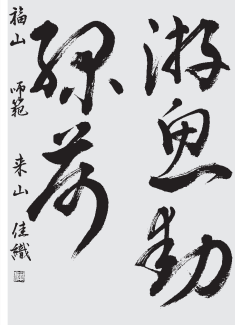 游魚動
緑荷
福山 師範 来山 佳織